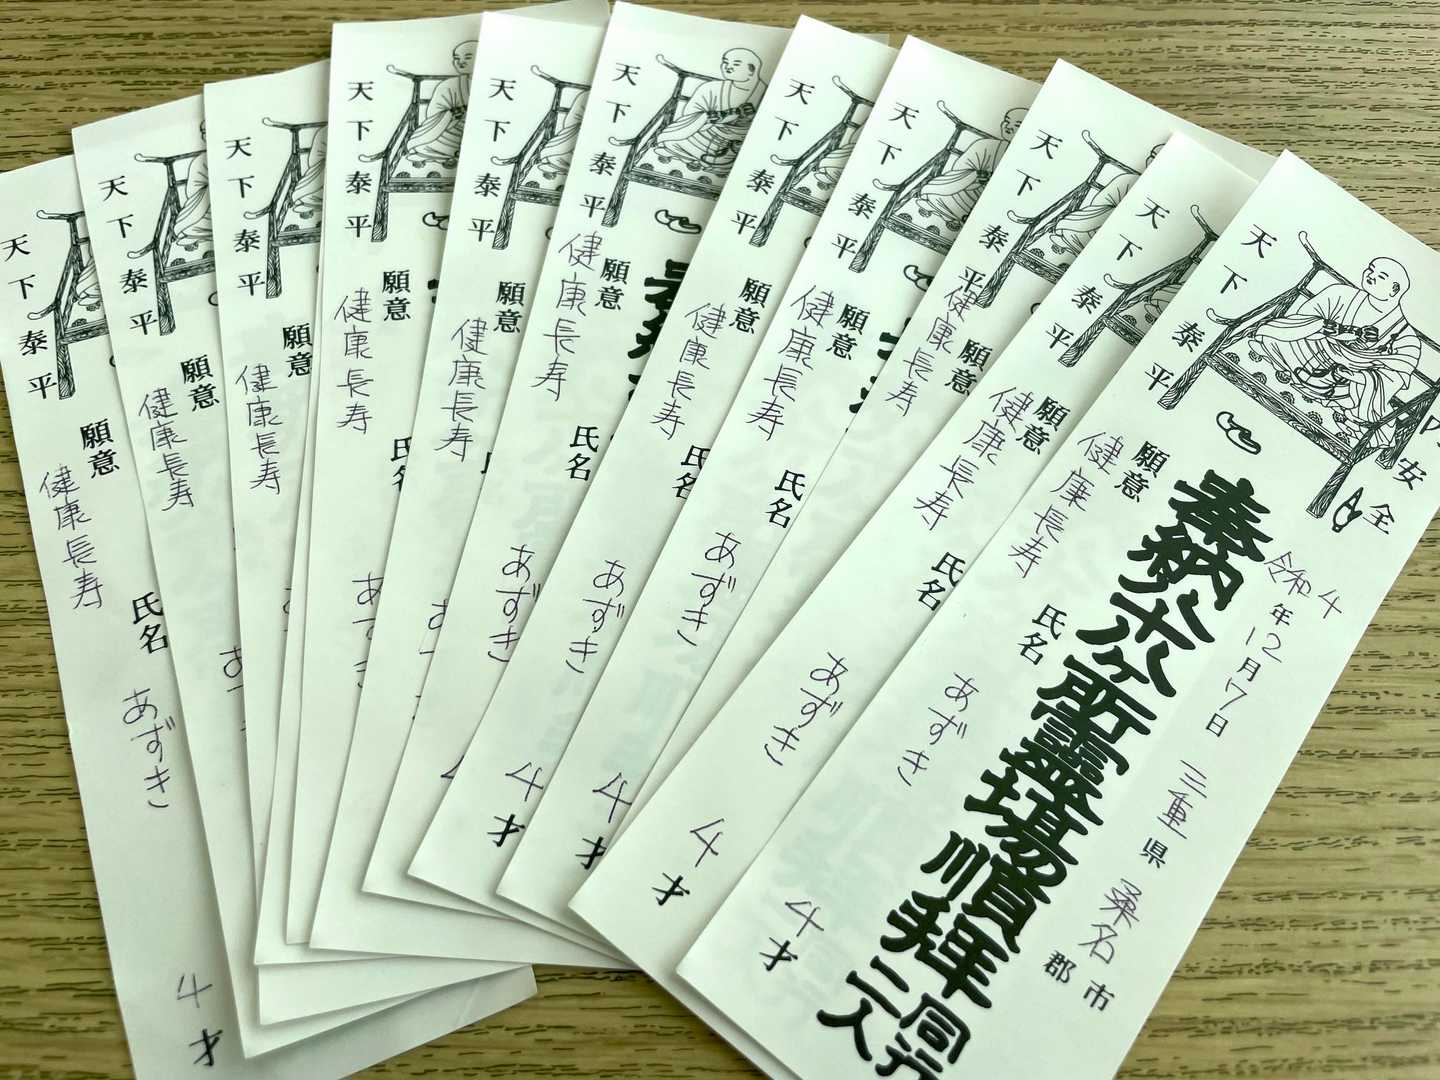 天下泰平
願意
健康長寿
氏名
あずき
4才
天下泰平
願意
健康長寿
天下泰平
願意
健康長寿
天下泰平
願意
健康長寿
氏名
天下泰平
願意
健康長寿
天下泰平
願意
健康長寿
氏名
あずき
4才
天下泰平
願意
健康長寿
氏名
あずき
4才
天下泰平
願意
健康長寿
氏名
あずき
天下泰平
願意
健康長寿
天下泰平
願意
健康長寿
氏名
あずき
4才
天下泰平
願意
健康長寿
氏名
あずき
4才
奉納八十八ヶ所霊場順拝同行二人
安全
令和4年12月7日
三重県桑名市郡